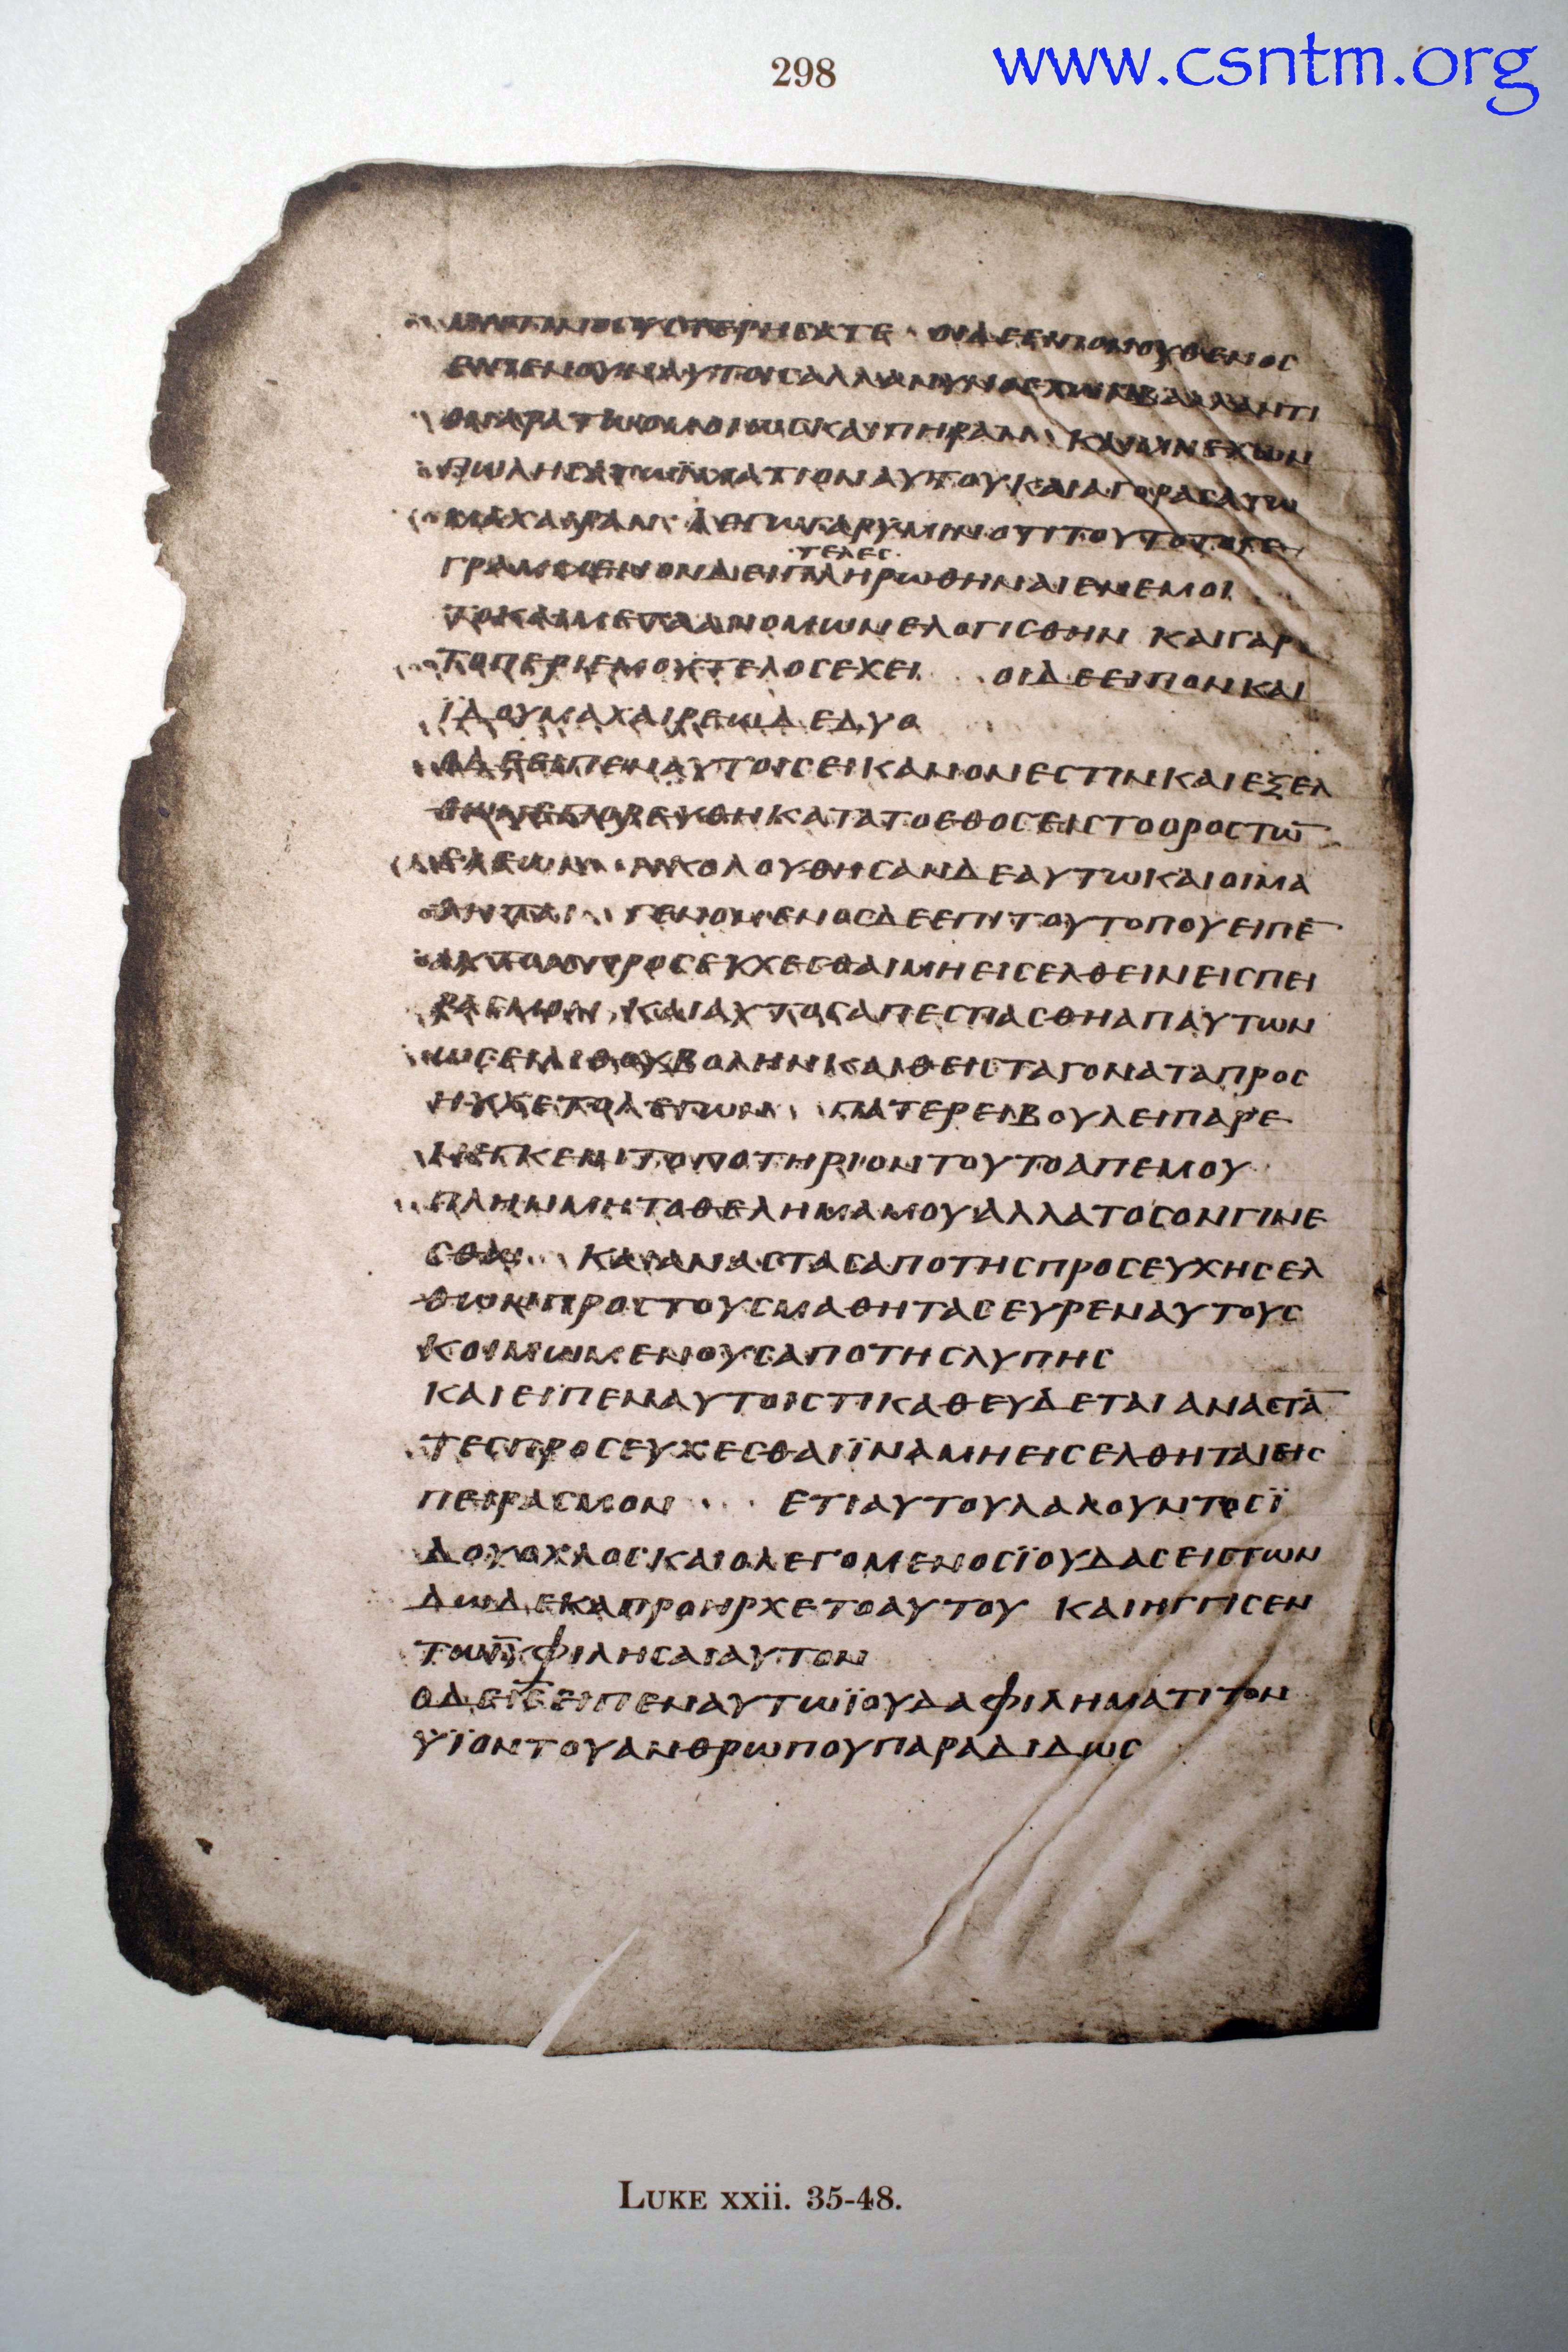 298
www.csntm.org
ΜΗΤΙΝΟΣΥΣΤΕΡΗΣΑΤΕ · ΟΙΔΕΕΙΠΟΝΟΥΘΕΝΟΣ
ΕΙΠΕΝΟΥΝΑΥΤΟΙΣΑΛΛΑΝΥΝΟΕΧΩΝΒΑΛΛΑΝΤΙ
ΟΝΑΡΑΤΩΟΜΟΙΩΣΚΑΙΠΗΡΑΝ ΚΑΙΜΗΕΧΩΝ
ΠΩΛΗΣΑΤΩΪΜΑΤΙΟΝΑΥΤΟΥΚΑΙΑΓΟΡΑΣΑΤΩ
ΜΑΧΑΙΡΑΝ ΛΕΓΩΓΑΡΥΜΙΝΟΤΙΤΟΥΤΟΤΟΓΕ
·ΤΕΛΕΣ·
ΓΡΑΜΜΕΝΟΝΔΕΙΠΛΗΡΩΘΗΝΑΙΕΝΕΜΟΙ
ΤΟΚΑΙΜΕΤΑΑΝΟΜΩΝΕΛΟΓΙΣΘΗΝ ΚΑΙΓΑΡ
ΤΟΠΕΡΙΕΜΟΥΤΕΛΟΣΕΧΕΙ ΟΙΔΕΕΙΠΟΝΚΑΙ
ΪΔΟΥΜΑΧΑΙΡΕΩΔΕΔΥΟ
ΟΔΕΕΙΠΕΝΑΥΤΟΙΣΕΙΚΑΝΟΝΕΣΤΙΝΚΑΙΕΞΕΛ
ΘΩΝΕΠΟΡΕΥΘΗΚΑΤΑΤΟΕΘΟΣΕΙΣΤΟΟΡΟΣΤΩ̅
ΕΛΕΩΝ · ΗΚΟΛΟΥΘΗΣΑΝΔΕΑΥΤΩΚΑΙΟΙΜΑ
ΘΗΤΑΙ ΓΕΝΟΜΕΝΟΣΔΕΕΠΙΤΟΥΤΟΠΟΥΕΙΠΕ̅
ΑΥΤΟΙΣΠΡΟΣΕΥΧΕΣΘΑΙΜΗΕΙΣΕΛΘΕΙΝΕΙΣΠΕΙ
ΡΑΣΜΟΝ ΚΑΙΑΥΤΟΣΑΠΕΣΠΑΣΘΗΑΠΑΥΤΩΝ
ΩΣΕΙΛΙΘΟΥΒΟΛΗΝΚΑΙΘΕΙΣΤΑΓΟΝΑΤΑΠΡΟΣ
ΗΥΧΕΤΟΛΕΓΩΝ ΠΑΤΕΡΕΙΒΟΥΛΕΙΠΑΡΕ
ΝΕΓΚΕΙΝΤΟΠΟΤΗΡΙΟΝΤΟΥΤΟΑΠΕΜΟΥ
ΠΛΗΝΜΗΤΟΘΕΛΗΜΑΜΟΥΑΛΛΑΤΟΣΟΝΓΙΝΕ
ΣΘΩ ΚΑΙΑΝΑΣΤΑΣΑΠΟΤΗΣΠΡΟΣΕΥΧΗΣΕΛ
ΘΩΝΠΡΟΣΤΟΥΣΜΑΘΗΤΑΣΕΥΡΕΝΑΥΤΟΥΣ
ΚΟΙΜΩΜΕΝΟΥΣΑΠΟΤΗΣΛΥΠΗΣ
ΚΑΙΕΙΠΕΝΑΥΤΟΙΣΤΙΚΑΘΕΥΔΕΤΑΙΑΝΑΣΤΑ̅
ΤΕΣΠΡΟΣΕΥΧΕΣΘΑΙΪΝΑΜΗΕΙΣΕΛΘΗΤΑΙΕΙΣ
ΠΕΙΡΑΣΜΟΝ · · ΕΤΙΑΥΤΟΥΛΑΛΟΥΝΤΟΣΪ
ΔΟΥΟΧΛΟΣΚΑΙΟΛΕΓΟΜΕΝΟΣΪΟΥΔΑΣΕΙΣΤΩΝ
ΔΩΔΕΚΑΠΡΟΗΡΧΕΤΟΑΥΤΟΥ ΚΑΙΗΓΓΙΣΕΝ
ΤΩΙ̅Υ̅ΦΙΛΗΣΑΙΑΥΤΟΝ
ΟΔΕΙ̅Σ̅ΕΙΠΕΝΑΥΤΩΪΟΥΔΑΦΙΛΗΜΑΤΙΤΟΝ
ΥΪΟΝΤΟΥΑΝΘΡΩΠΟΥΠΑΡΑΔΙΔΩΣ
LUKE xxii. 35-48.